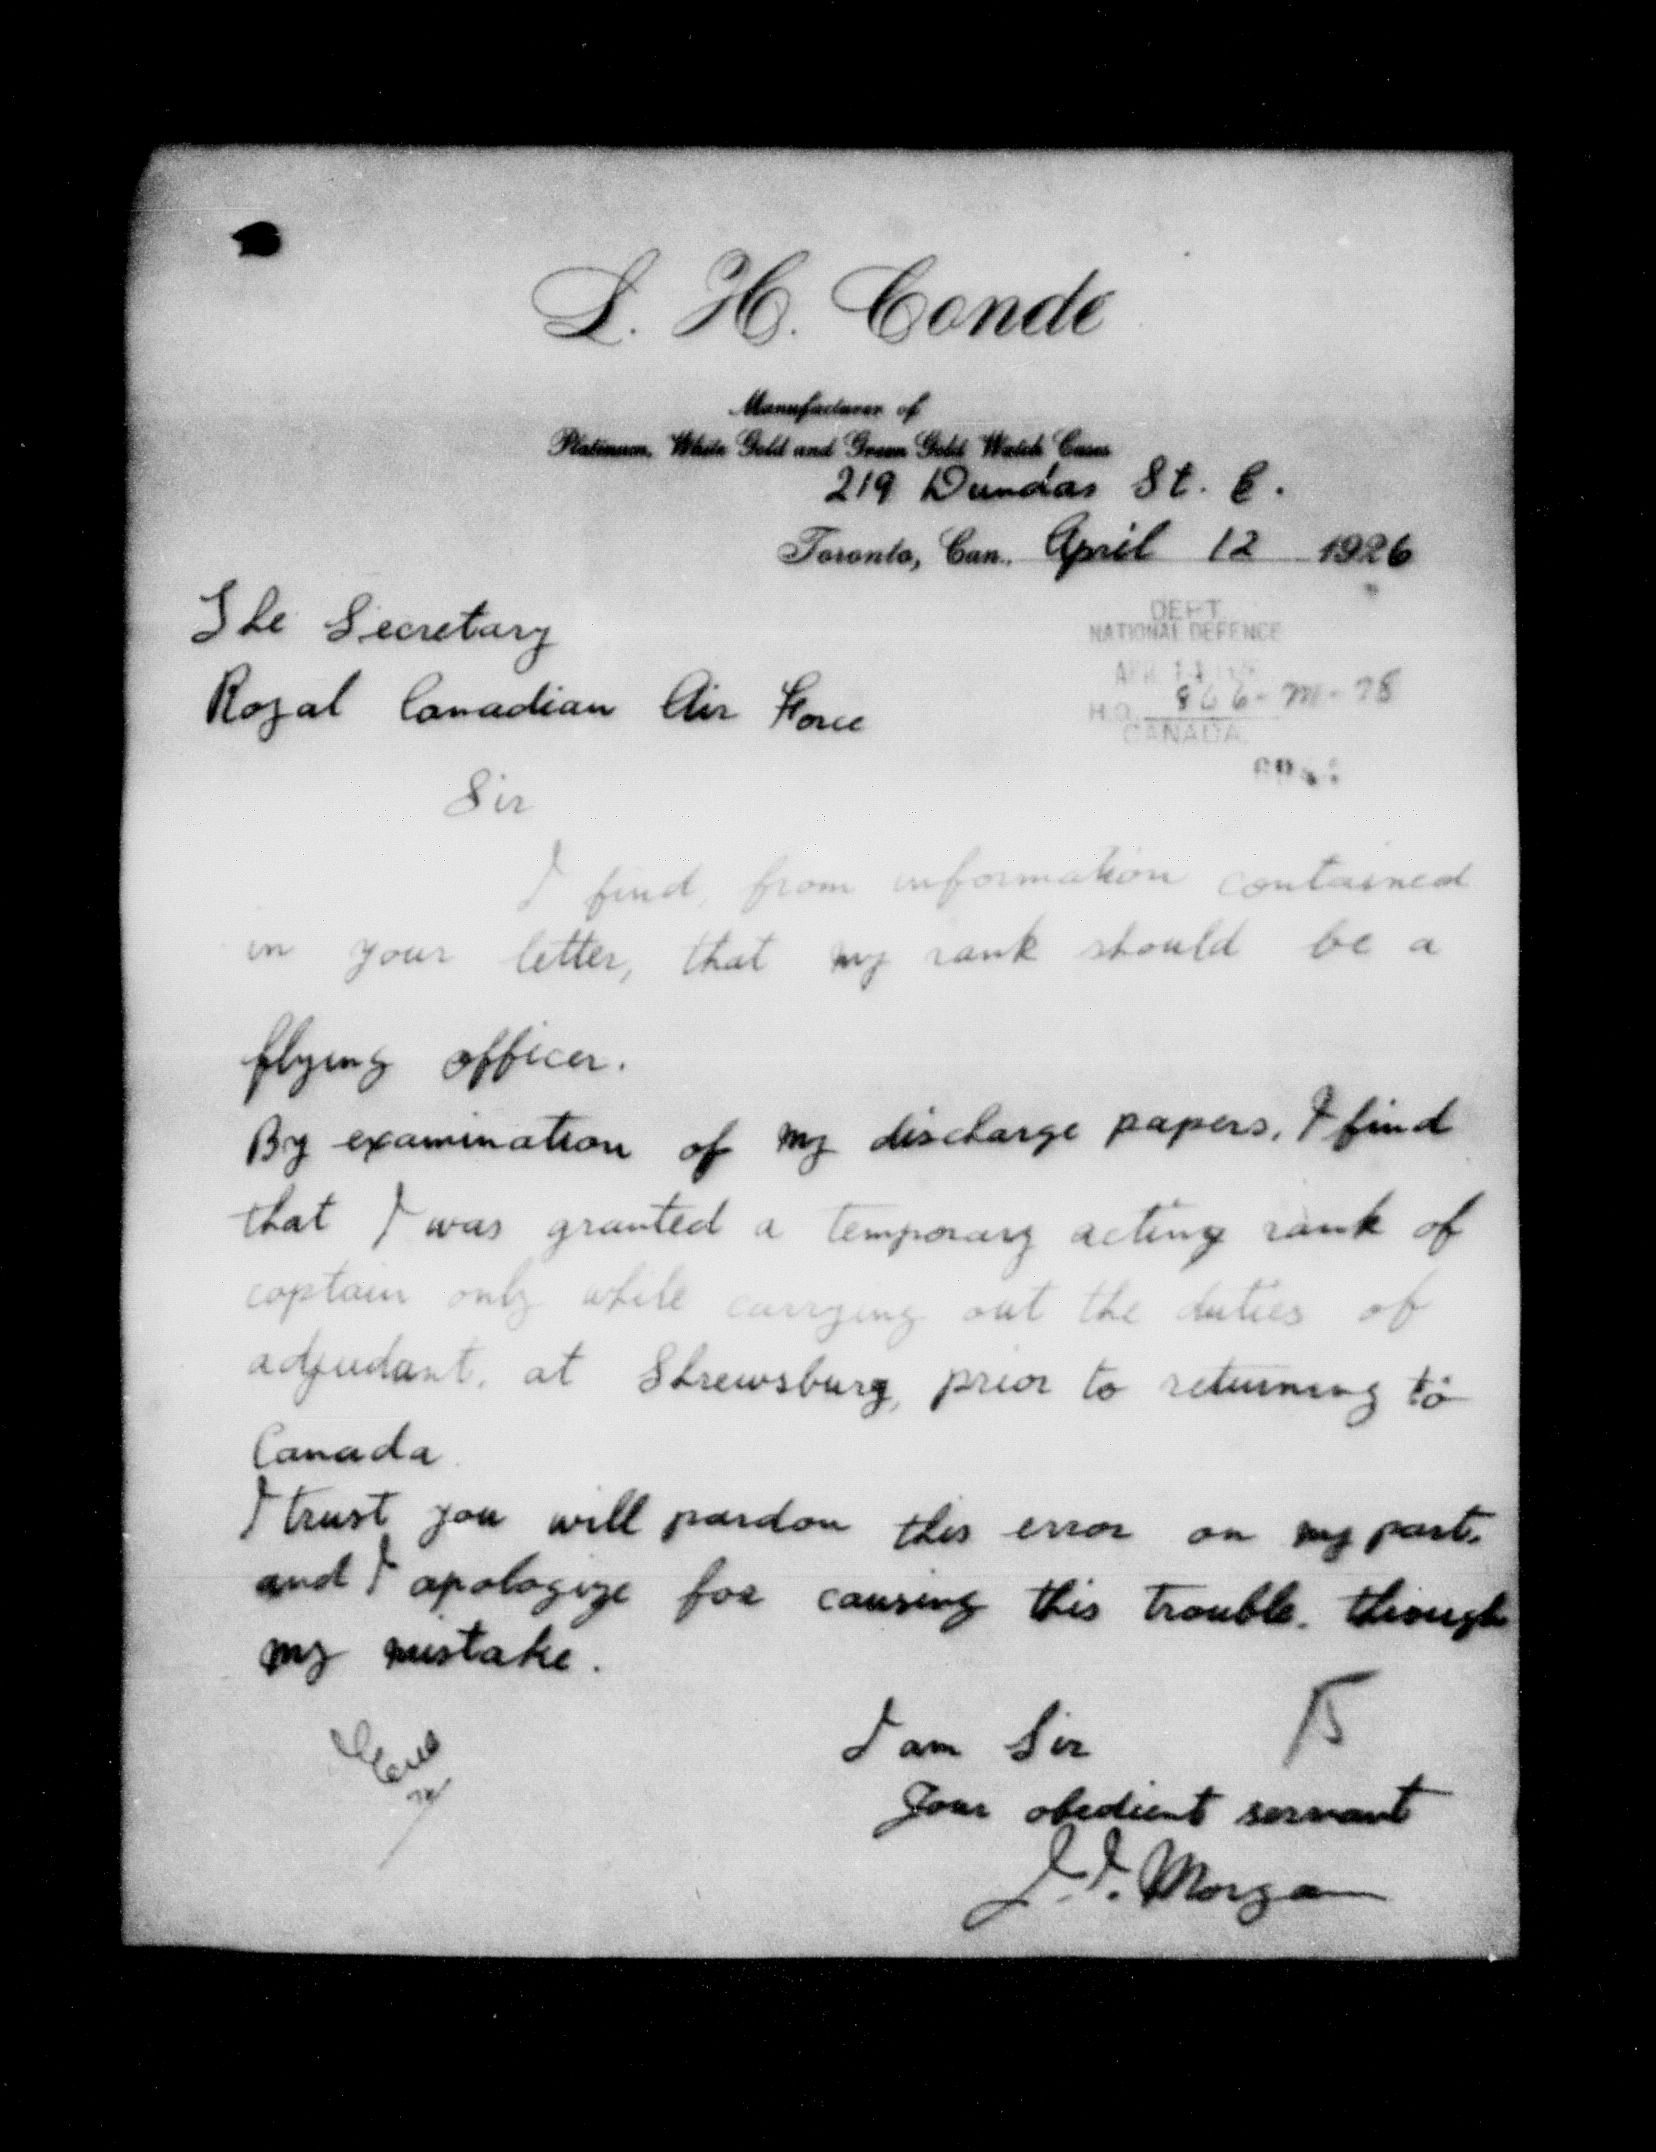 L. H. Conde
Manufacturer of
Platinum, White Gold and Green Gold Watch Cases
219 Dundas St. E.
Toronto, Can., April 12 1926
The Secretary
Royal Canadian Air Force
DEPT.
NATIONAL DEFENCE
866-M-78
H.Q.
CANADA
Sir
I find, from information contained
in your letter, that my rank should be a
flying officer.
By examination of my discharge papers, I find
that I was granted a temporary acting rank of
captain only while carrying out the duties of
adjudant, at Shrewsbury, prior to returning to
Canada
I trust you will pardon this error on my part,
and I apologize for causing this trouble, through
my mistake.
I am Sir
Your obedient servant
J. J. Morgan